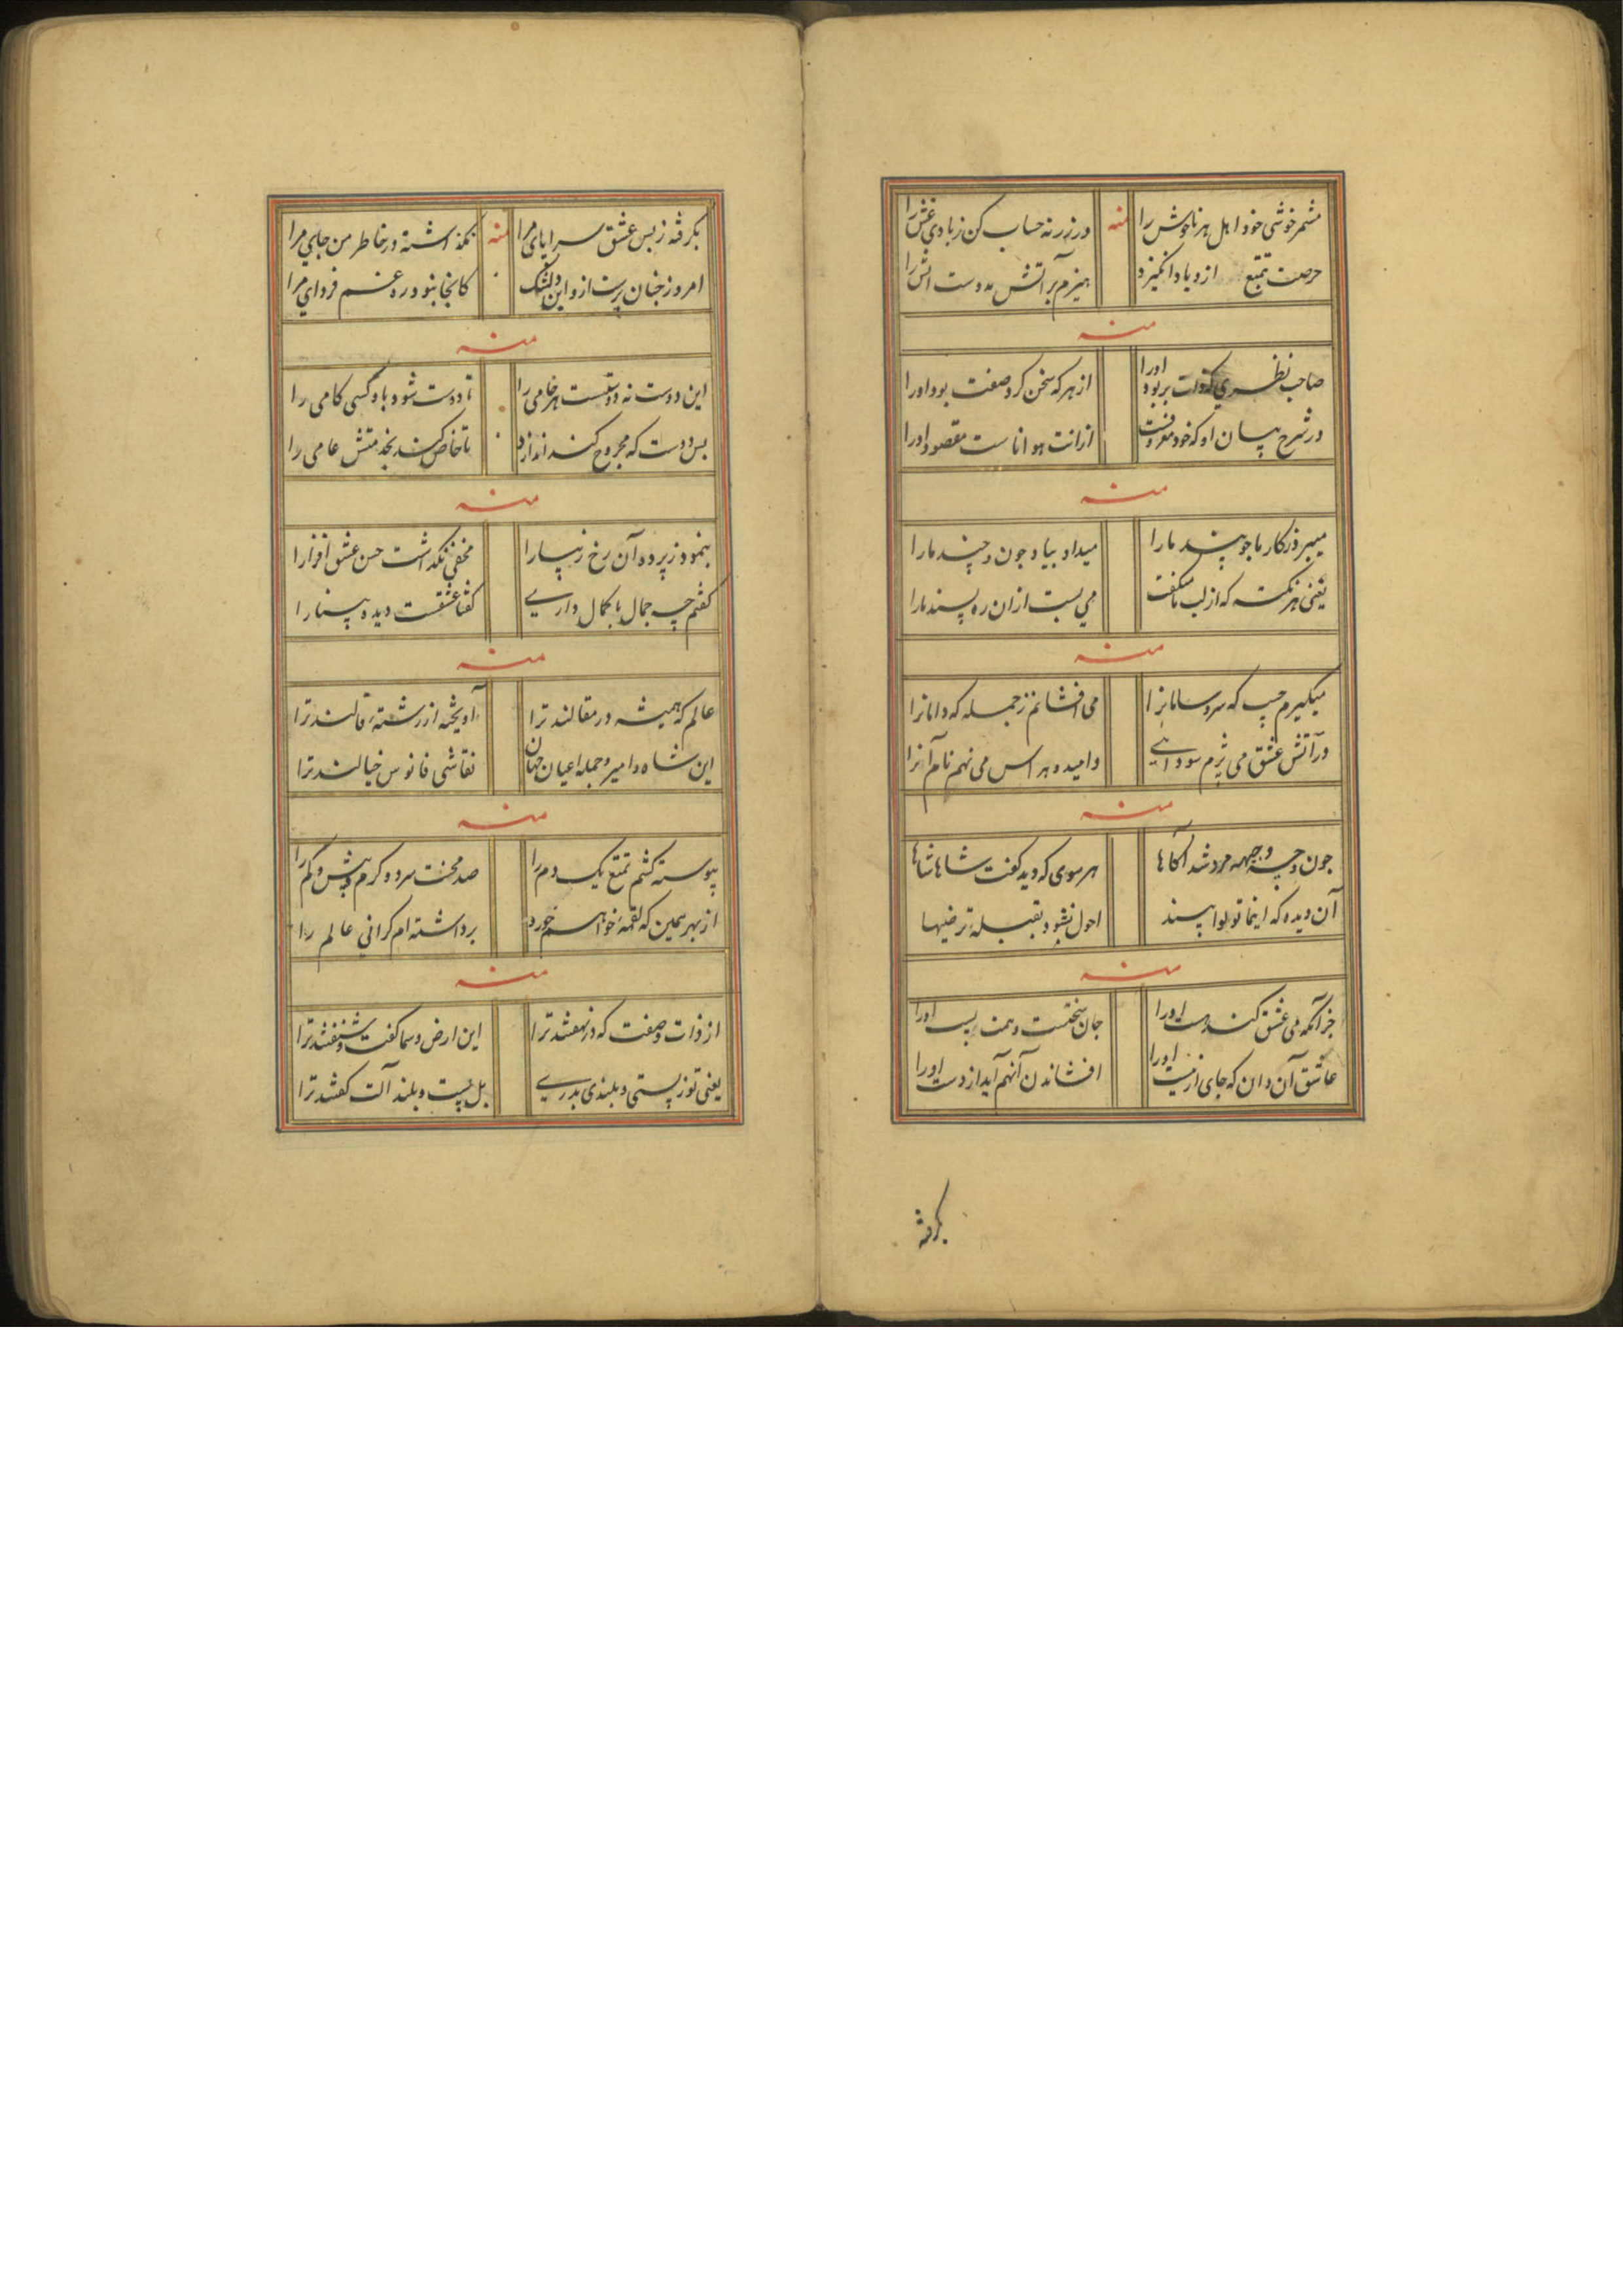 مشمر خوشی خود اهل هر ناخوش را منه ورنه زنه حساب کن زبادی غش را
حرصت تمتع ازدیاد انگیزد هیزم بر آتش مدوست آتش را
منه
صاحب نظری که ذات بربود اورا از هر که سخن کرد صفت بود اورا
در شرح بیان او که خود معروفست از انت هو اناست مقصود اورا
منه
میبرد زکار ما جو پند مارا میداد بیاد جون و چند مارا
یعنی هر نکته که از لب ما میگفت می بست از ان ره پسند مارا
منه
میگیرم حب که سر و سامانرا می افشانم ز جمله که دامانرا
در آتش عشق می پزم سودایی وامید و هراس می نهم نام آنرا
منه
جون وجهه مرد شد آگاها هر سوی که دید گفت شاها شاها
آن دیده که اینما تولوا بیند احول نشود بقبلة ترضیها
منه
جز آنکه می عشق کند مست اورا جان سختست و همت پست اورا
عاشق آن دان که جای از نیست اورا افشاندن آنهم آید از دست اورا
بگرفته
بگرفته ز بس عشق سراپای مرا منه نگذاشته در خاطر من جای مرا
امروز جنان پرست از و این دل تنگ کانجا نبود ره غم فردای مرا
منه
این دوست نه دوتست هر خامی را تا دوست شود باد کسی کامی را
بس دوست که مجروح کند اندازد تا خاص کند بخدمتش عامی را
منه
بنمود ز پرده آن رخ زیبا را مخفی نگذاشت حسن عشق افزا را
گفتم چه جمال با کمال داری گفتا عشقست دیده بینا را
منه
عالم که همیشه در مقالند ترا آویخته از رشته قالند ترا
این شاه و امیر و جمله اعیان جهان نقاشی فانوس خیالند ترا
منه
پیوسته کشم تمتع یک دم را صد محنت سرد و گرم و بیش و کم را
از بهر همین که لقمه خواهم خورد برداشته ام گرانی عالم را
منه
از ذات و صفت که در نهفتند ترا این ارض و سما گفت و شنفتند ترا
یعنی تو ز پستی و بلندی بدری بل پست و بلند آلت گفتند ترا